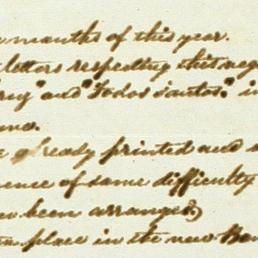 months of this year.
letters respecting this neg
and "Todos Santos." in
already printed and
ence of some difficulty
been arranged,
place in the new